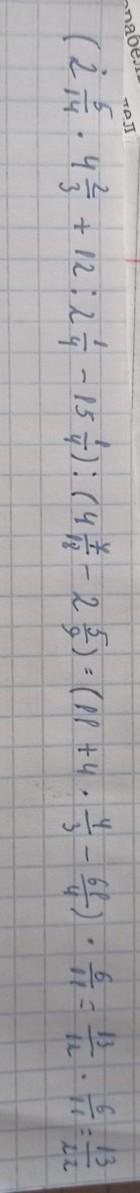 (2 5/14 · 4 2/3 + 12 : 2 1/4 - 15 1/4) : (4 7/18 - 2 5/9) = (11 + 4 · 4/3 - 61/4) · 6/11 = 13/12 · 6/11 = 13/22